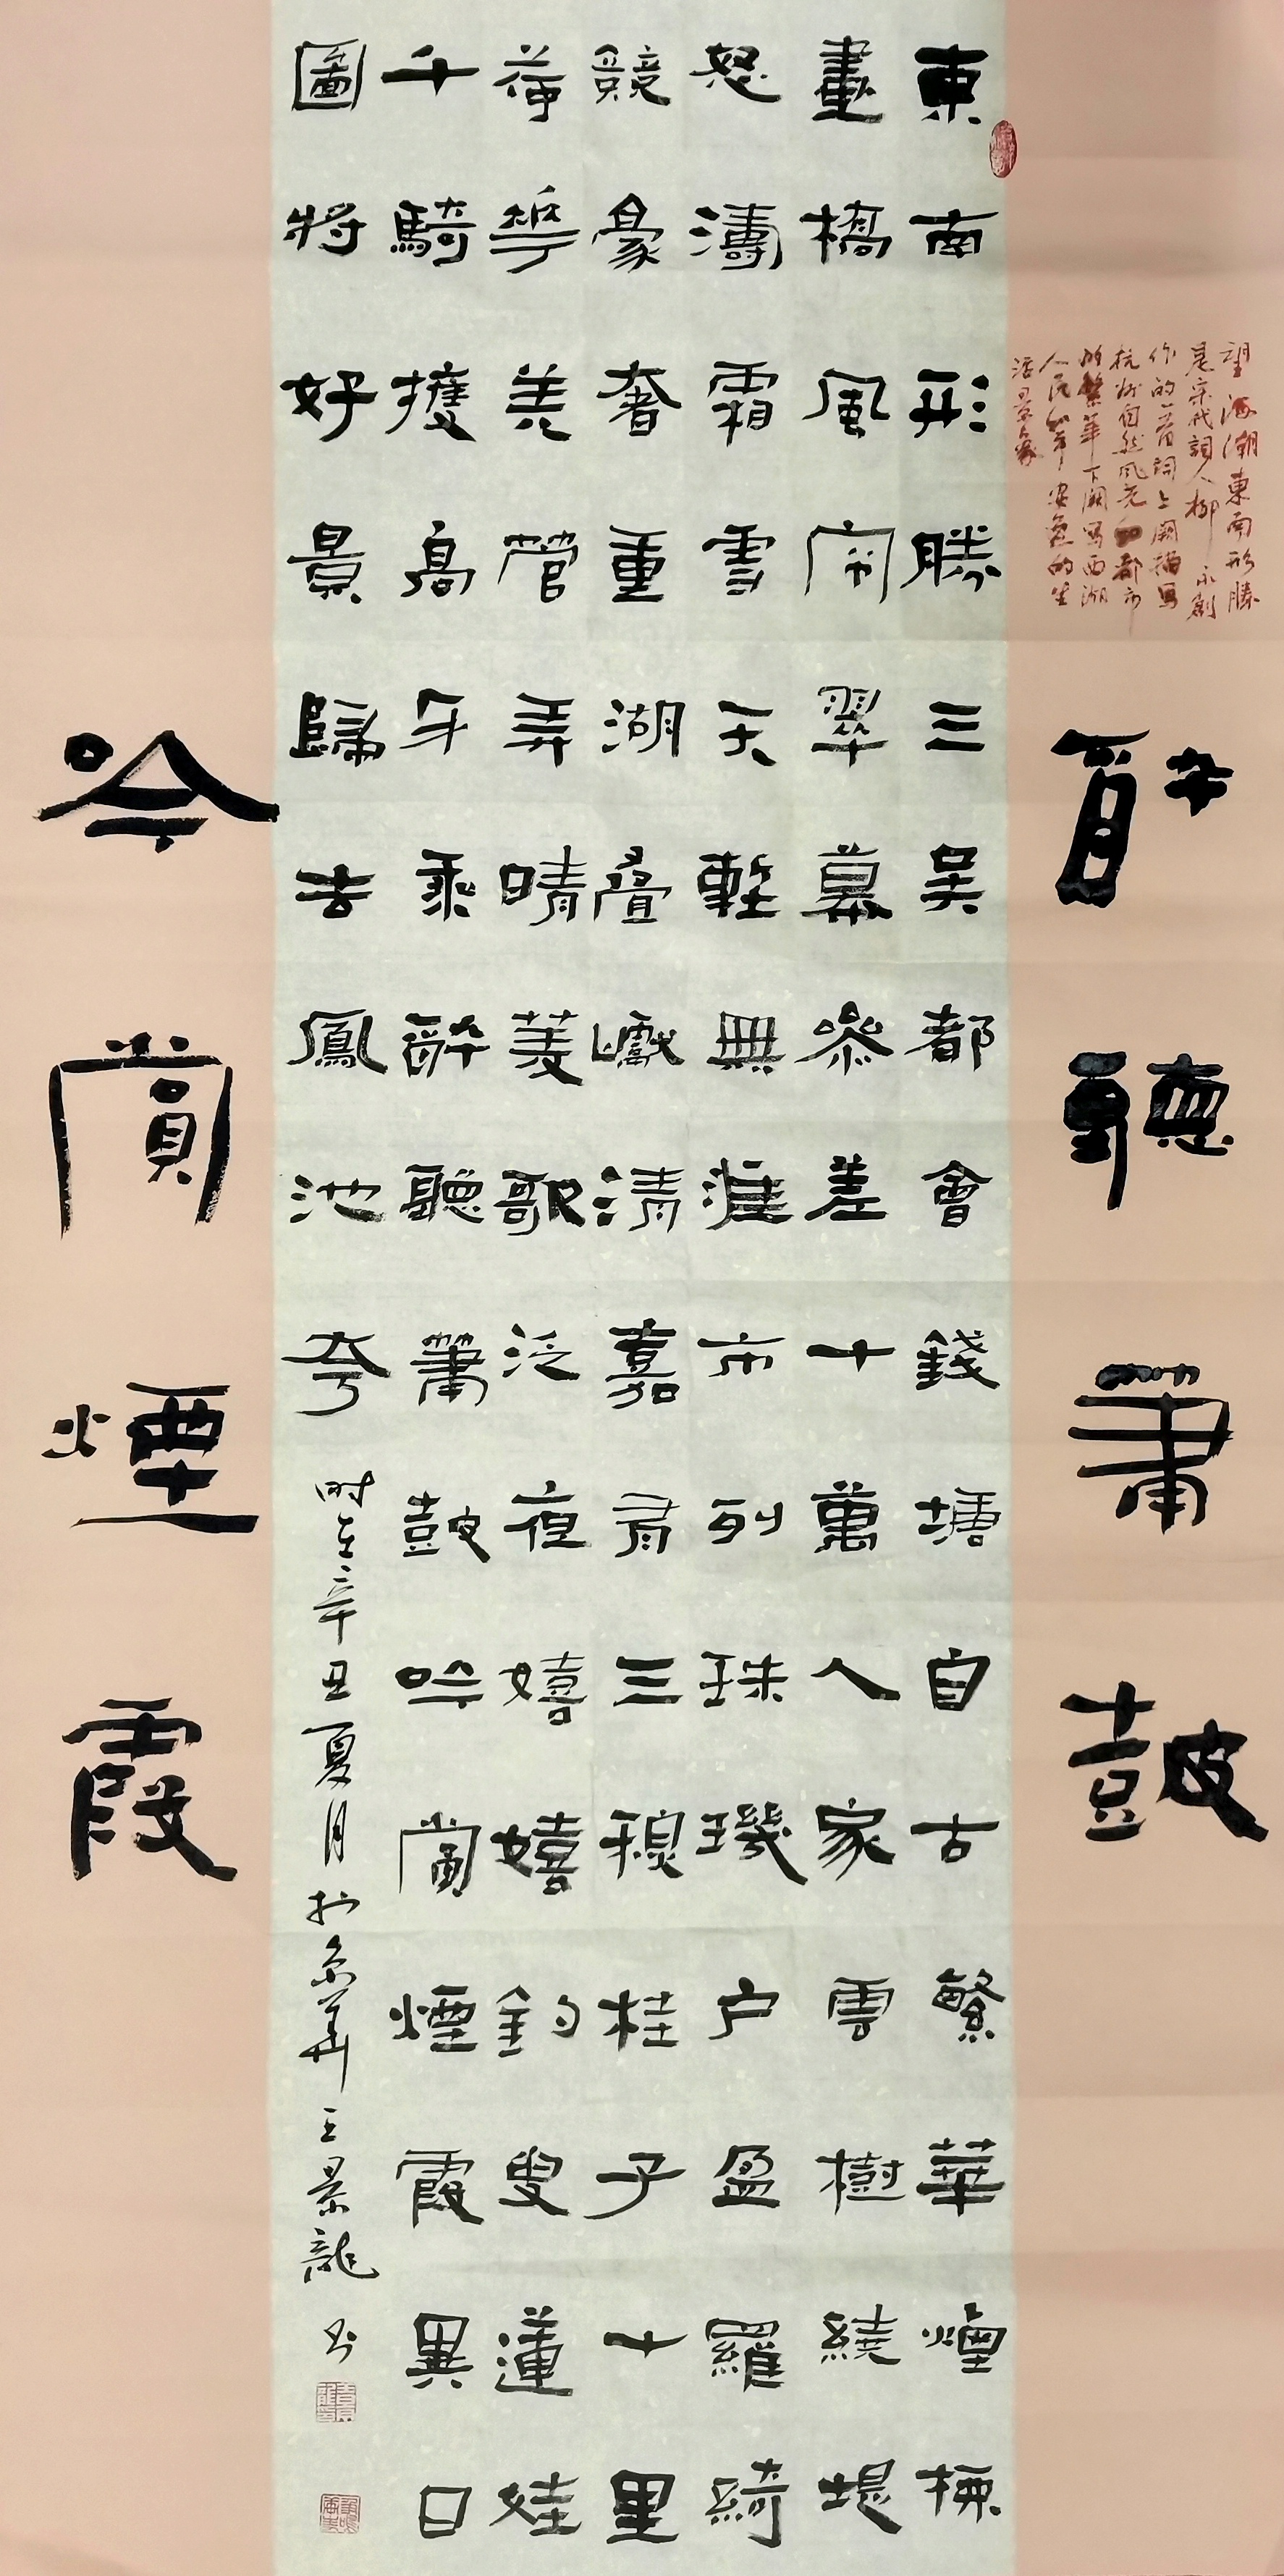 望海潮東南形勝
是宋代詞人柳永創
作的一首詞上闕描寫
杭州自然风光和都市
的繁華下闕写西湖
人民和平安逸的生
活景象
醉聽簫鼓
東南形勝三吳都會錢塘自古繁華煙柳
畫橋風帘翠幕參差十萬人家雲樹繞堤
怒濤霜雪天塹無涯市列珠璣户盈羅綺
競豪奢重湖疊巘清嘉有三秋桂子十里
荷花羌管弄晴菱歌泛夜嬉嬉釣叟蓮娃
千騎擁高牙乘醉聽簫鼓吟賞煙霞異日
圖將好景歸去鳳池夸
时在辛丑夏月於京華王景龍书
吟賞煙霞